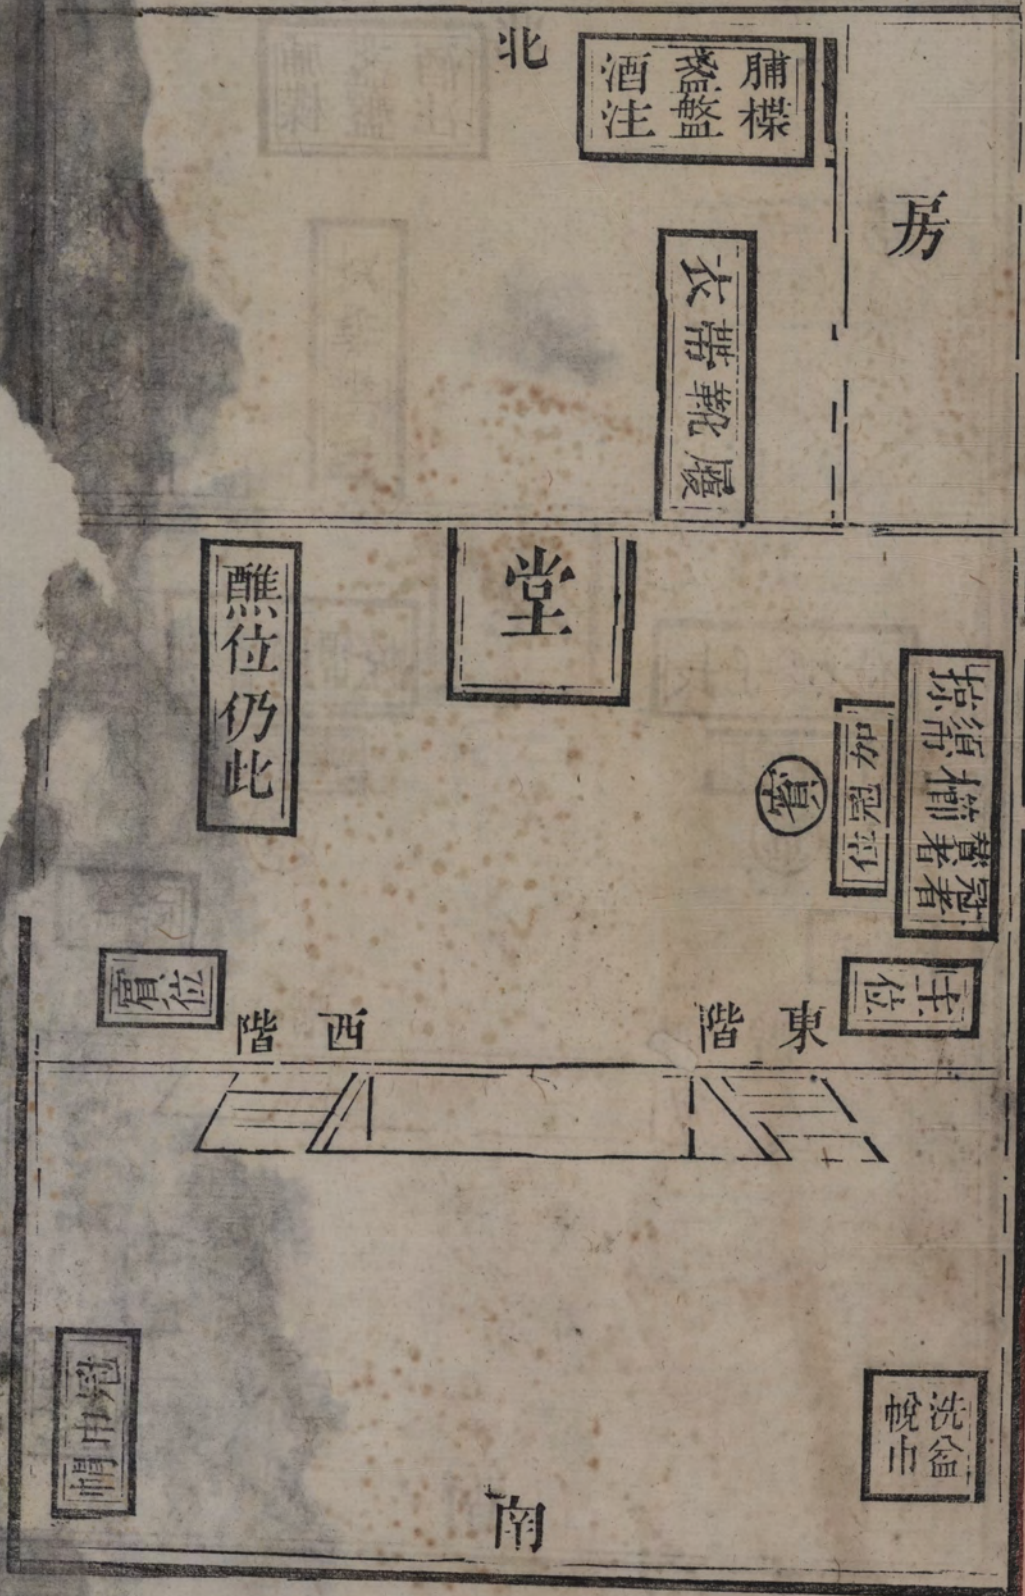 北
脯楪
盞盤
酒注
房
衣帶靴履
堂
醮位仍此
掠須櫛
帋
贊者
冠者
加冠位
賓
賓位
主位
西階
東階
冠巾帽
洗盆
帨巾
南